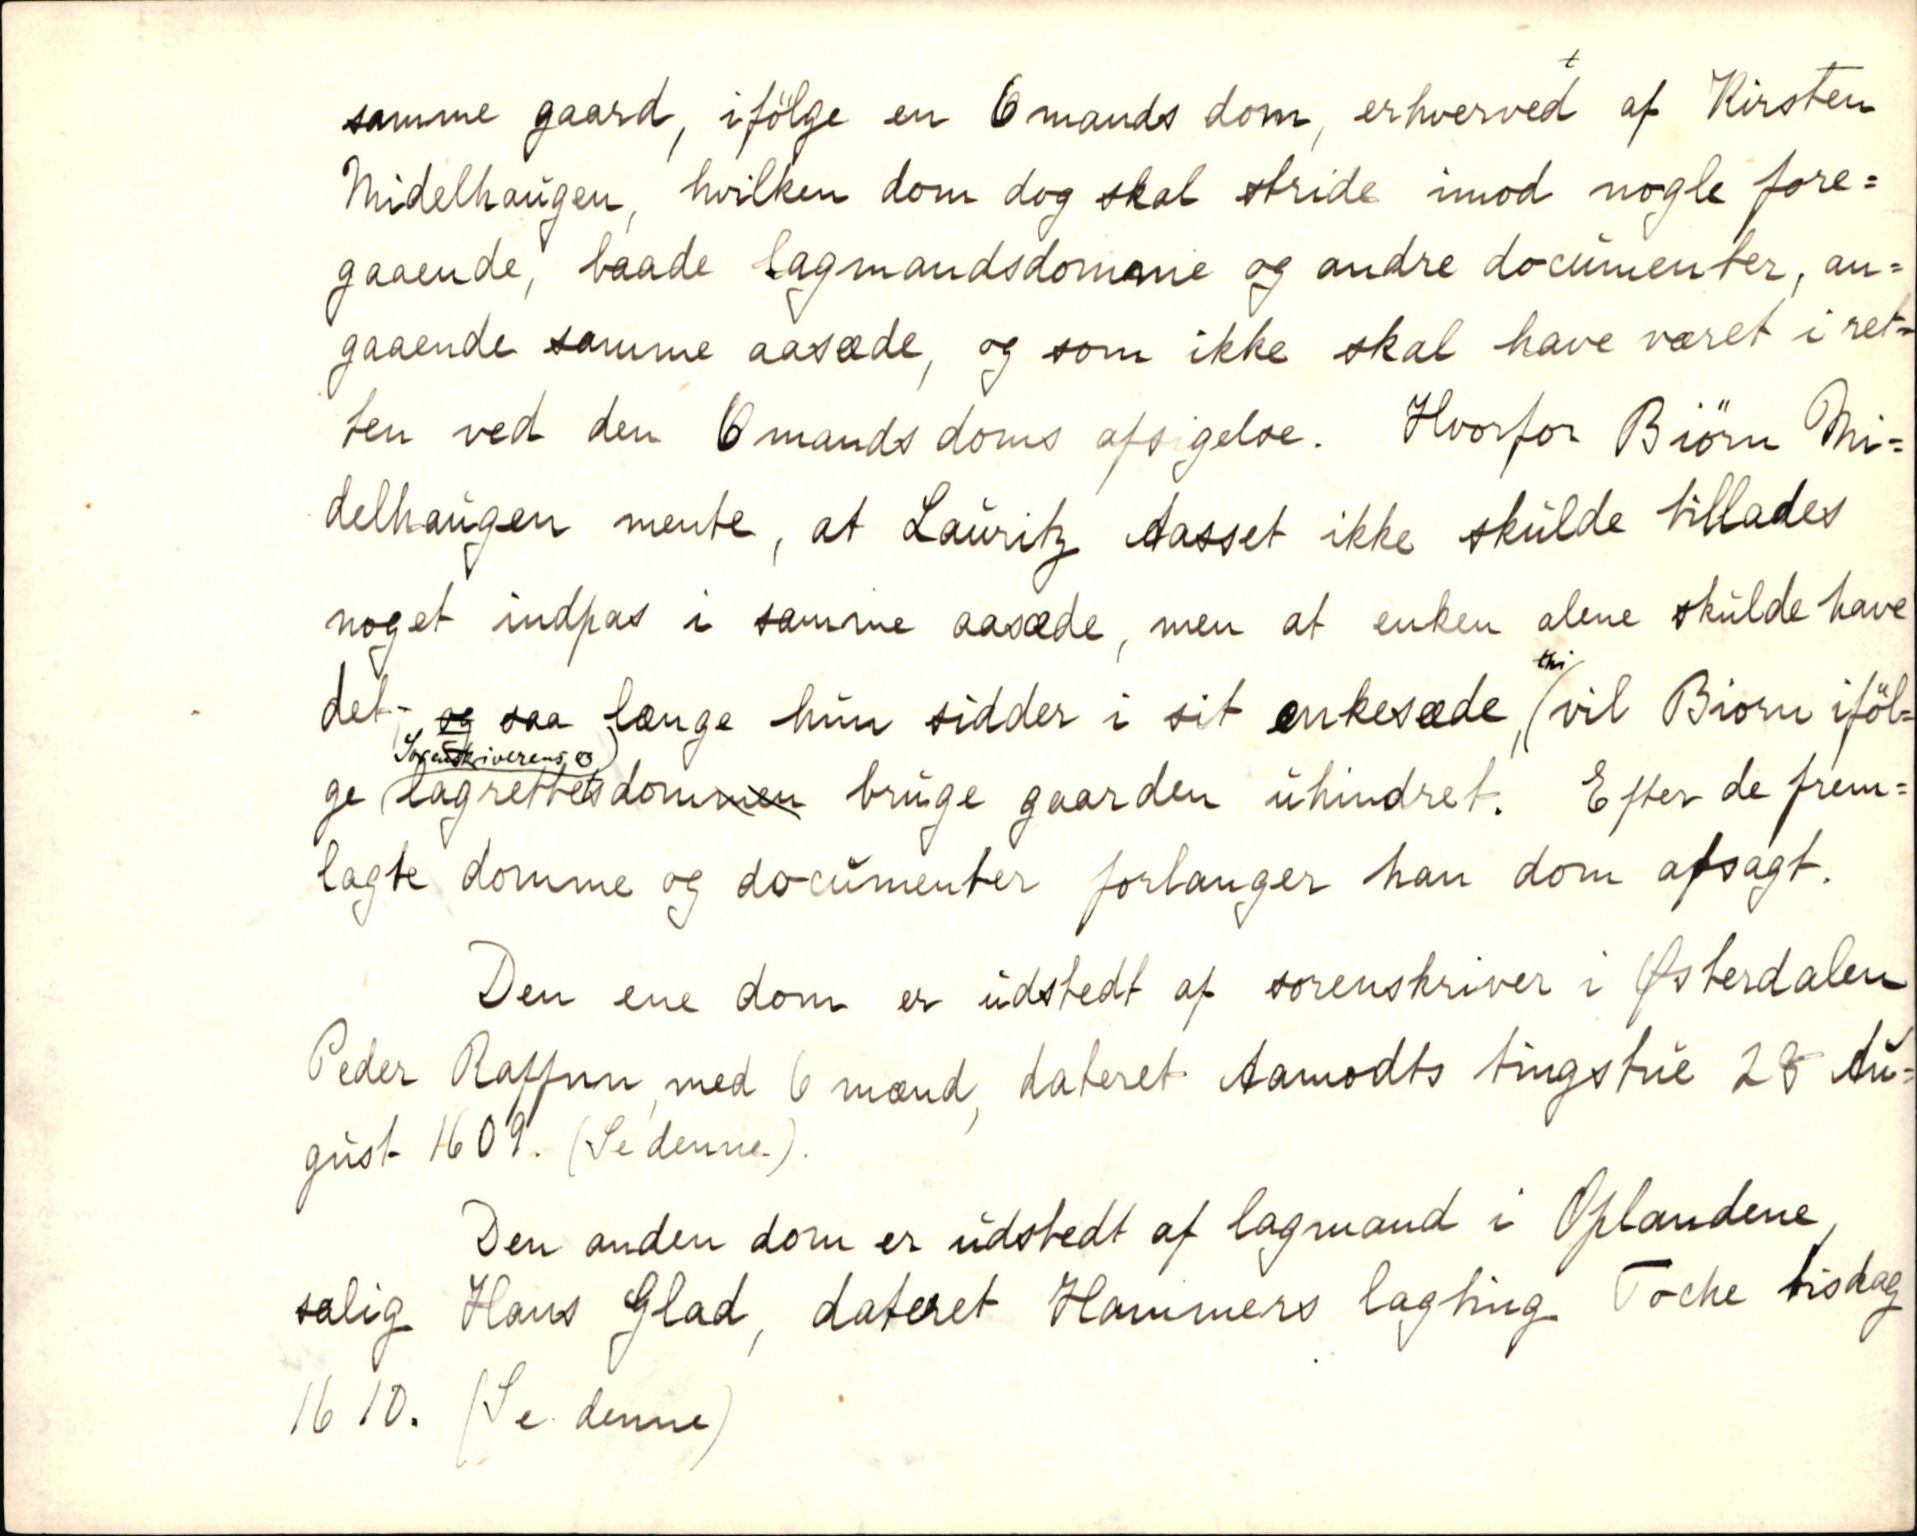 samme gaard, ifölge en 6 mands dom, erhvervedt af Kirsten
Midelhaugen, hvilken dom dog skal stride imod nogle fore=
gaaende, baade lagmandsdomme og andre documenter, an=
gaaende samme aasæde, og som ikke skal have været i ret=
ten ved den 6 mands doms afsigelse. Hvorfor Biörn Mi=
delhaugen mente, at Lauritz Aasset ikke skulde tillades
noget indpas i samme aasæde, men at enken alene skulde have
det, og saa længe hun sidder i sit enkesæde, (thi vil Biorn iföl=
Sorenskriverens og
ge lagrettetsdommen bruge gaarden uhindret. Efter de frem=
lagte domme og documenter forlanger han dom afsagt.
Den ene dom er udstedt af sorenskriver i Østerdalen
Peder Raffnn, med 6 mænd, dateret Aamodts tingstue 28 Au=
gust 1609. (Se denne).
Den anden dom er udstedt af lagmand i Oplandene,
salig Hans Glad, dateret Hammers lagting Toche tisdag
1610. (Se denne)